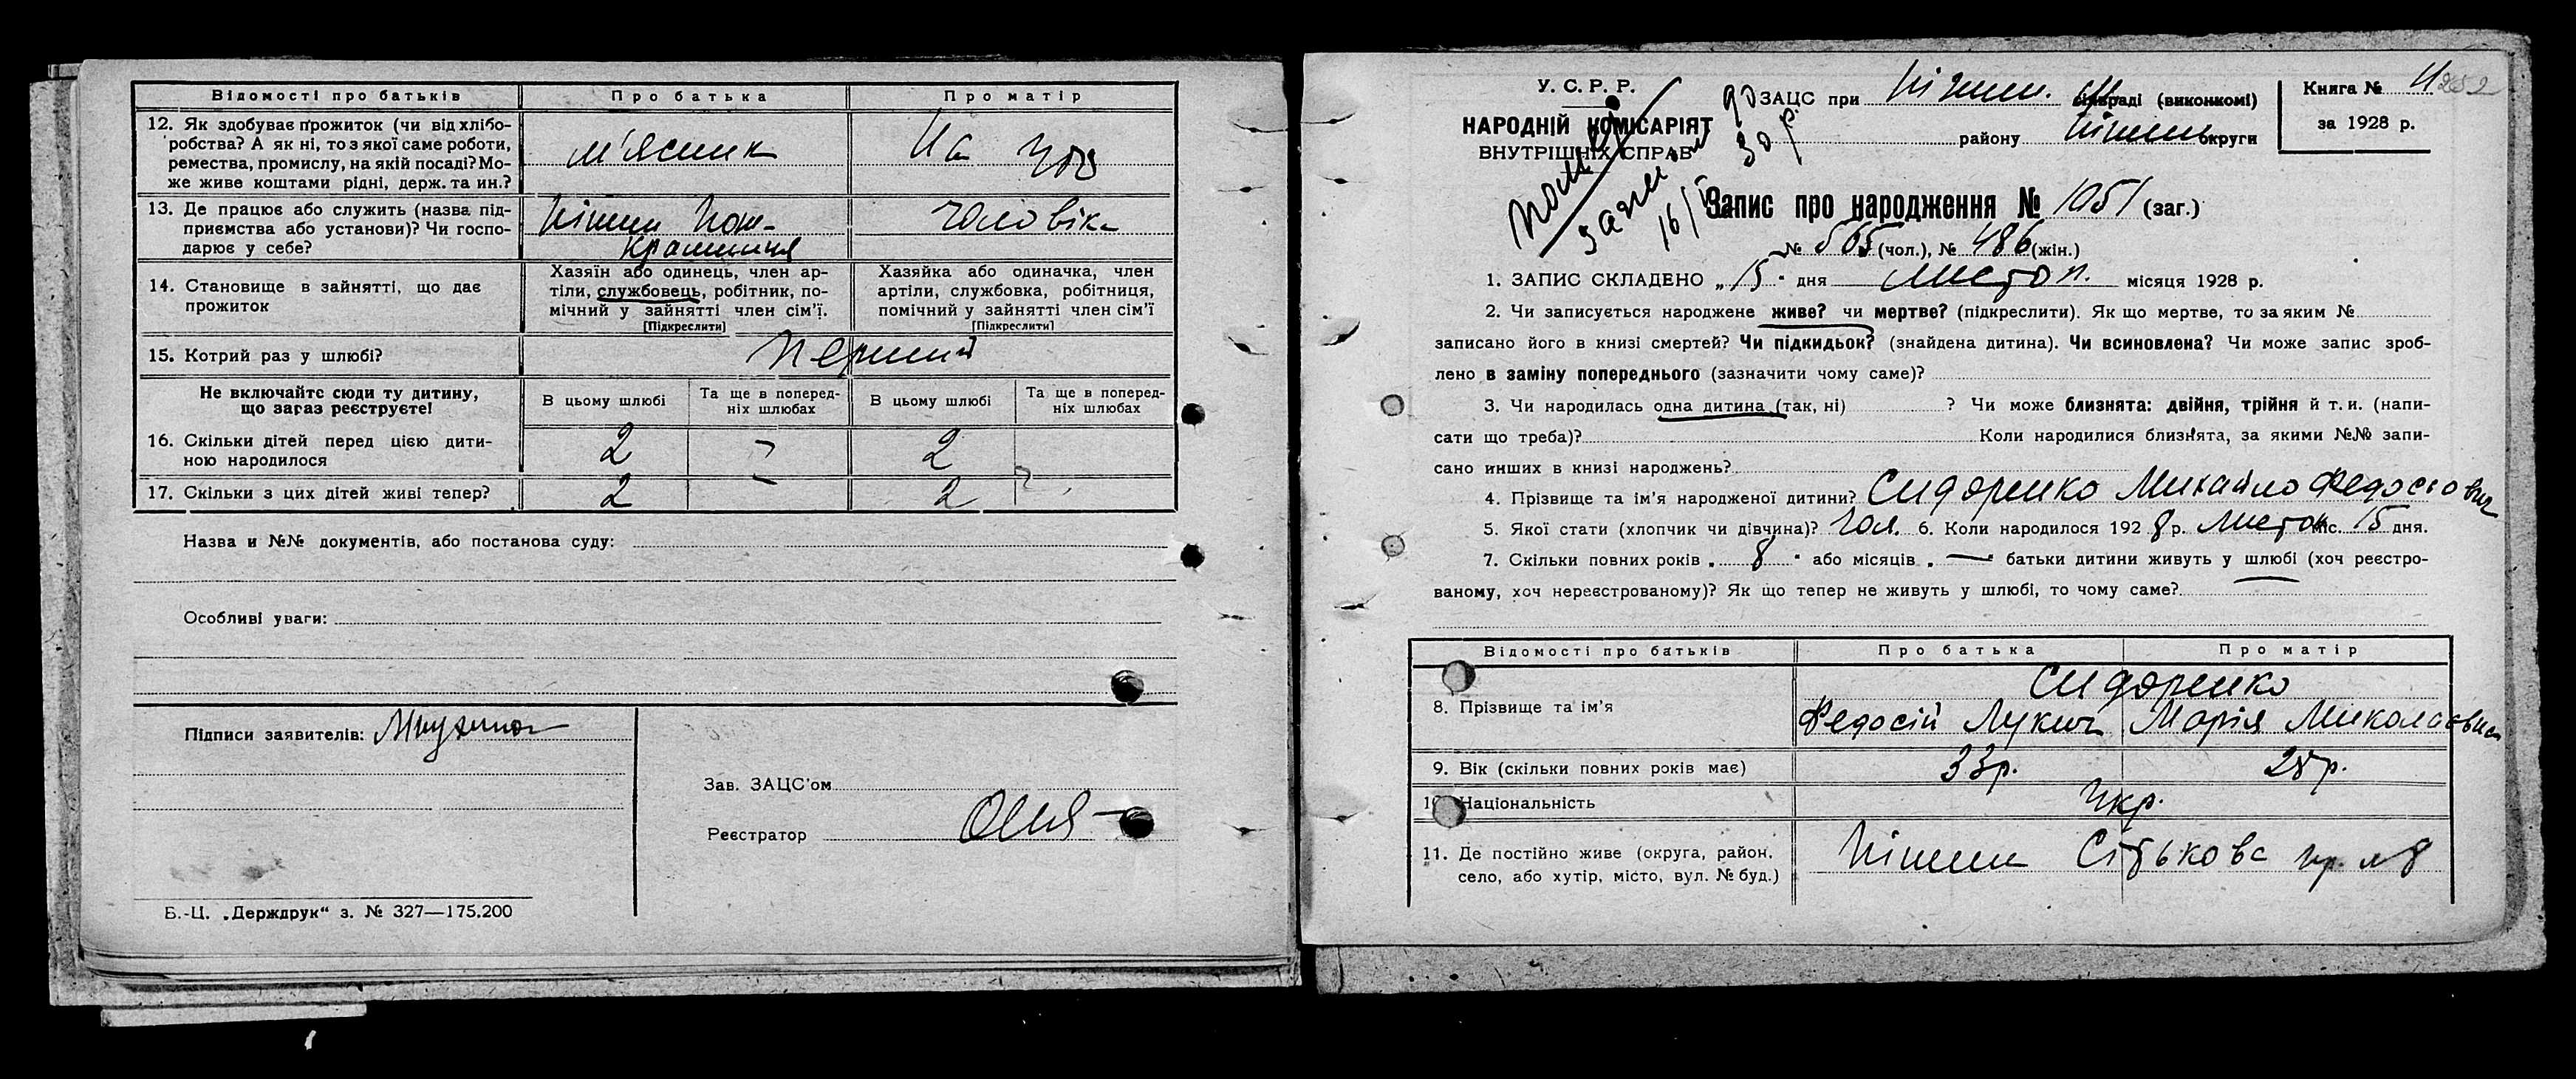 Відомості про батьків Про батька Про матір
12. Як здобуває прожиток (чи від хлібо-
робства? А як ні, то з якої саме роботи,
ремества, промислу, на якій посаді? Мо-
же живе коштами рідні, держ. та ин.?
м'ясник На
13. Де працює або служить (назва під-
приємства або установи)? Чи госпо-
дарює у себе?
Ніжин чоловіка
14. Становище в зайнятті, що дає
прожиток
Хазяїн або одинець, член ар-
тіли, службовець, робітник, по-
мічний у зайнятті член сім'ї.
[Підкреслити]
Хазяйка або одиначка, член
артіли, службовка, робітниця,
помічний у зайнятті член сім'ї
[Підкреслити]
15. Котрий раз у шлюбі? перший
Не включайте сюди ту дитину,
що зараз реєструєте!
В цьому шлюбі Та ще в поперед-
ніх шлюбах В цьому шлюбі Та ще в поперед-
ніх шлюбах
16. Скільки дітей перед цією дити-
ною народилося 2 – 2
17. Скільки з цих дітей живі тепер? 2 – 2
Назва и №№ документів, або постанова суду:
Особливі уваги:
Підписи заявителів:
Зав. ЗАЦС'ом
Реєстратор
Б.-Ц. „Держдрук“ з. № 327—175.200
У. С. Р. Р.
НАРОДНІЙ КОМІСАРІЯТ
ВНУТРІШНІХ СПРАВ
ЗАЦС при Ніжин. міськраді (виконкомі)
району Ніжин округи
Книга № 4 252
за 1928 р.
30 р.
16/
Запис про народження № 1051 (заг.)
№ 565 (чол.), № 486 (жін.)
1. ЗАПИС СКЛАДЕНО „15“ дня листоп. місяця 1928 р.
2. Чи записується народжене живе? чи мертве? (підкреслити). Як що мертве, то за яким №
записано його в книзі смертей? Чи підкидьок? (знайдена дитина). Чи всиновлена? Чи може запис зроб-
лено в заміну попереднього (зазначити чому саме)?
3. Чи народилась одна дитина (так, ні) ? Чи може близнята: двійня, трійня й т. и. (напи-
сати що треба)? Коли народилися близнята, за якими №№ запи-
сано инших в книзі народжень?
4. Прізвище та ім'я народженої дитини? Сидоренко Михайло Федосієвич
5. Якої стати (хлопчик чи дівчина)? чол. 6. Коли народилося 1928 р. листоп міс. 15 дня.
7. Скільки повних років „ 8 “ або місяців „ — “ батьки дитини живуть у шлюбі (хоч реєстро-
ваному, хоч нереєстрованому)? Як що тепер не живуть у шлюбі, то чому саме?
Відомості про батьків Про батька Про матір
Сидоренко
8. Прізвище та ім'я Федосій Лукич Марія Миколаєвна
9. Вік (скільки повних років має) 33р. 28р.
10. Національність Укр.
11. Де постійно живе (округа, район,
село, або хутір, місто, вул. № буд.)
Ніжин №8